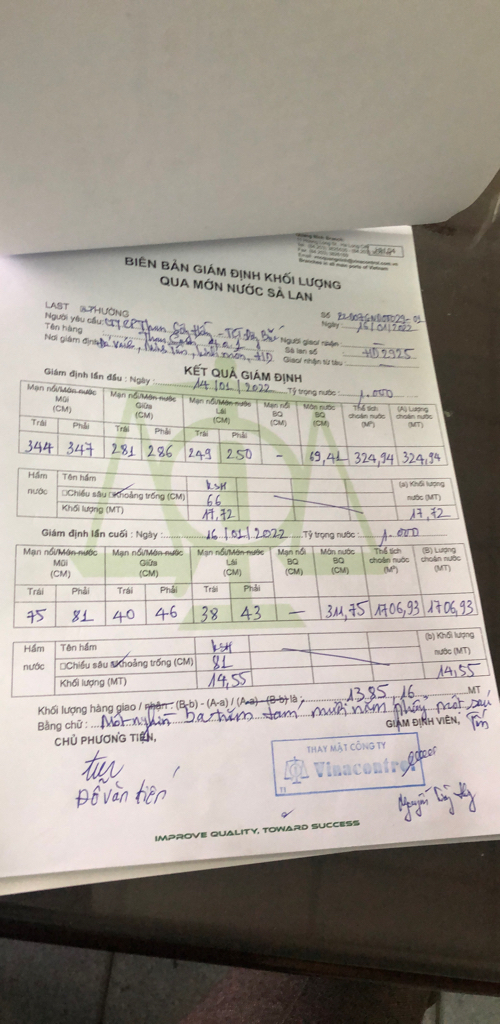 Branches in all main ports of Vietnam
BIÊN BẢN GIÁM ĐỊNH KHỐI LƯỢNG
QUA MỚN NƯỚC SÀ LAN
LAST THƯỜNG
Số
Người yêu cầu: CTy CP Than
Ngày: 16/01/2022
Tên hàng
Người giao/ nhận: —
Nơi giám định
Sà lan số HD2925
Giao/ nhận từ tàu —
KẾT QUẢ GIÁM ĐỊNH
Giám định lần đầu : Ngày : 14/01/2022 Tỷ trọng nước : 1.000
Mạn nổi/Mớn nước Mũi (CM) Mạn nổi/Mớn nước Giữa (CM) Mạn nổi/Mớn nước Lái (CM) Mạn nổi BQ (CM) Mớn nước BQ (CM) Thể tích choán nước (M³) (A) Lượng choán nước (MT)
Trái Phải Trái Phải Trái Phải
344 347 281 286 249 250 — 69,41 324,94 324,94
Hầm nước Tên hầm KSH (a) Khối lượng nước (MT)
□Chiều sâu □Khoảng trống (CM) 66
Khối lượng (MT) 17,72 17,72
Giám định lần cuối : Ngày : 16/01/2022 Tỷ trọng nước : 1.000
Mạn nổi/Mớn nước Mũi (CM) Mạn nổi/Mớn nước Giữa (CM) Mạn nổi/Mớn nước Lái (CM) Mạn nổi BQ (CM) Mớn nước BQ (CM) Thể tích choán nước (M³) (B) Lượng choán nước (MT)
Trái Phải Trái Phải Trái Phải
75 81 40 46 38 43 — 311,75 1706,93 1706,93
Hầm nước Tên hầm KSH (b) Khối lượng nước (MT)
□Chiều sâu □Khoảng trống (CM) 81
Khối lượng (MT) 14,55 14,55
Khối lượng hàng giao / nhận : (B-b) - (A-a) / (A-a) - (B-b) là : 1385,16 MT
Bằng chữ : Một nghìn ba trăm tám mươi năm phẩy một sáu Tấn
CHỦ PHƯƠNG TIỆN,
GIÁM ĐỊNH VIÊN,
THAY MẶT CÔNG TY
Vinacontrol
Đỗ Văn Tiến
Nguyễn
IMPROVE QUALITY, TOWARD SUCCESS